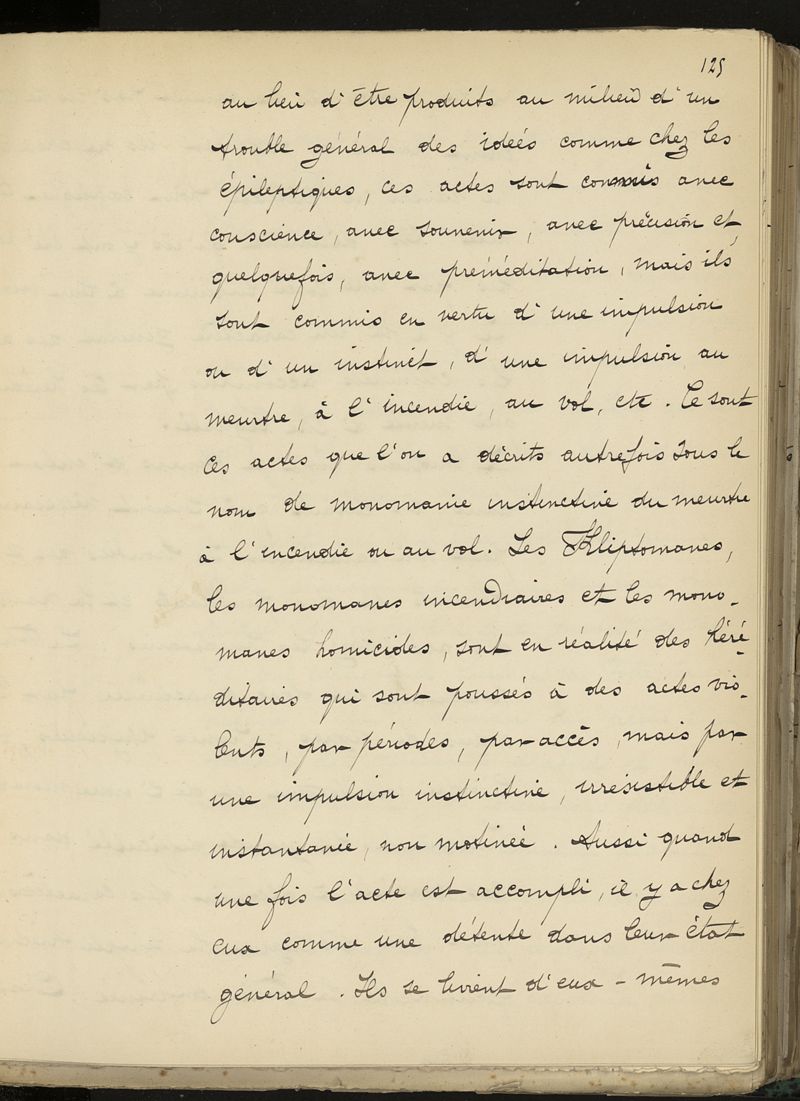 125
au lieu d'être produits au milieu d'un
trouble général des idées comme chez les
épileptiques, ces actes sont commis avec
conscience, avec souvenir, avec précision et,
quelquefois, avec préméditation, mais ils
sont commis en vertu d'une impulsion
ou d'un instinct, d'une impulsion au
meurtre, à l'incendie, au vol, etc. Ce sont
ces actes que l'on a décrits autrefois sous le
nom de monomanie instinctive du meurtre
à l'incendie ou au vol. Les Kliptomanes,
les monomanes incendiaires et les mono-
manes homicides, sont en réalité des héré-
ditaires qui sont poussés à des actes vio-
lents, par périodes, par accès, mais par
une impulsion instinctive, irrésistible et
instantanée, non motivée. Aussi quand
une fois l'acte est accompli, il y a chez
eux comme une détente dans leur état
général. Ils se livrent d'eux-mêmes